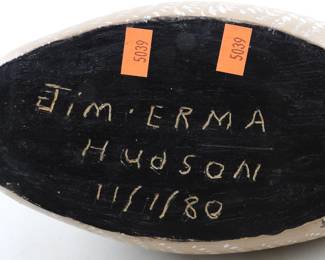 5039 5039
Jim · ERMA
HudsoN
11/1/80